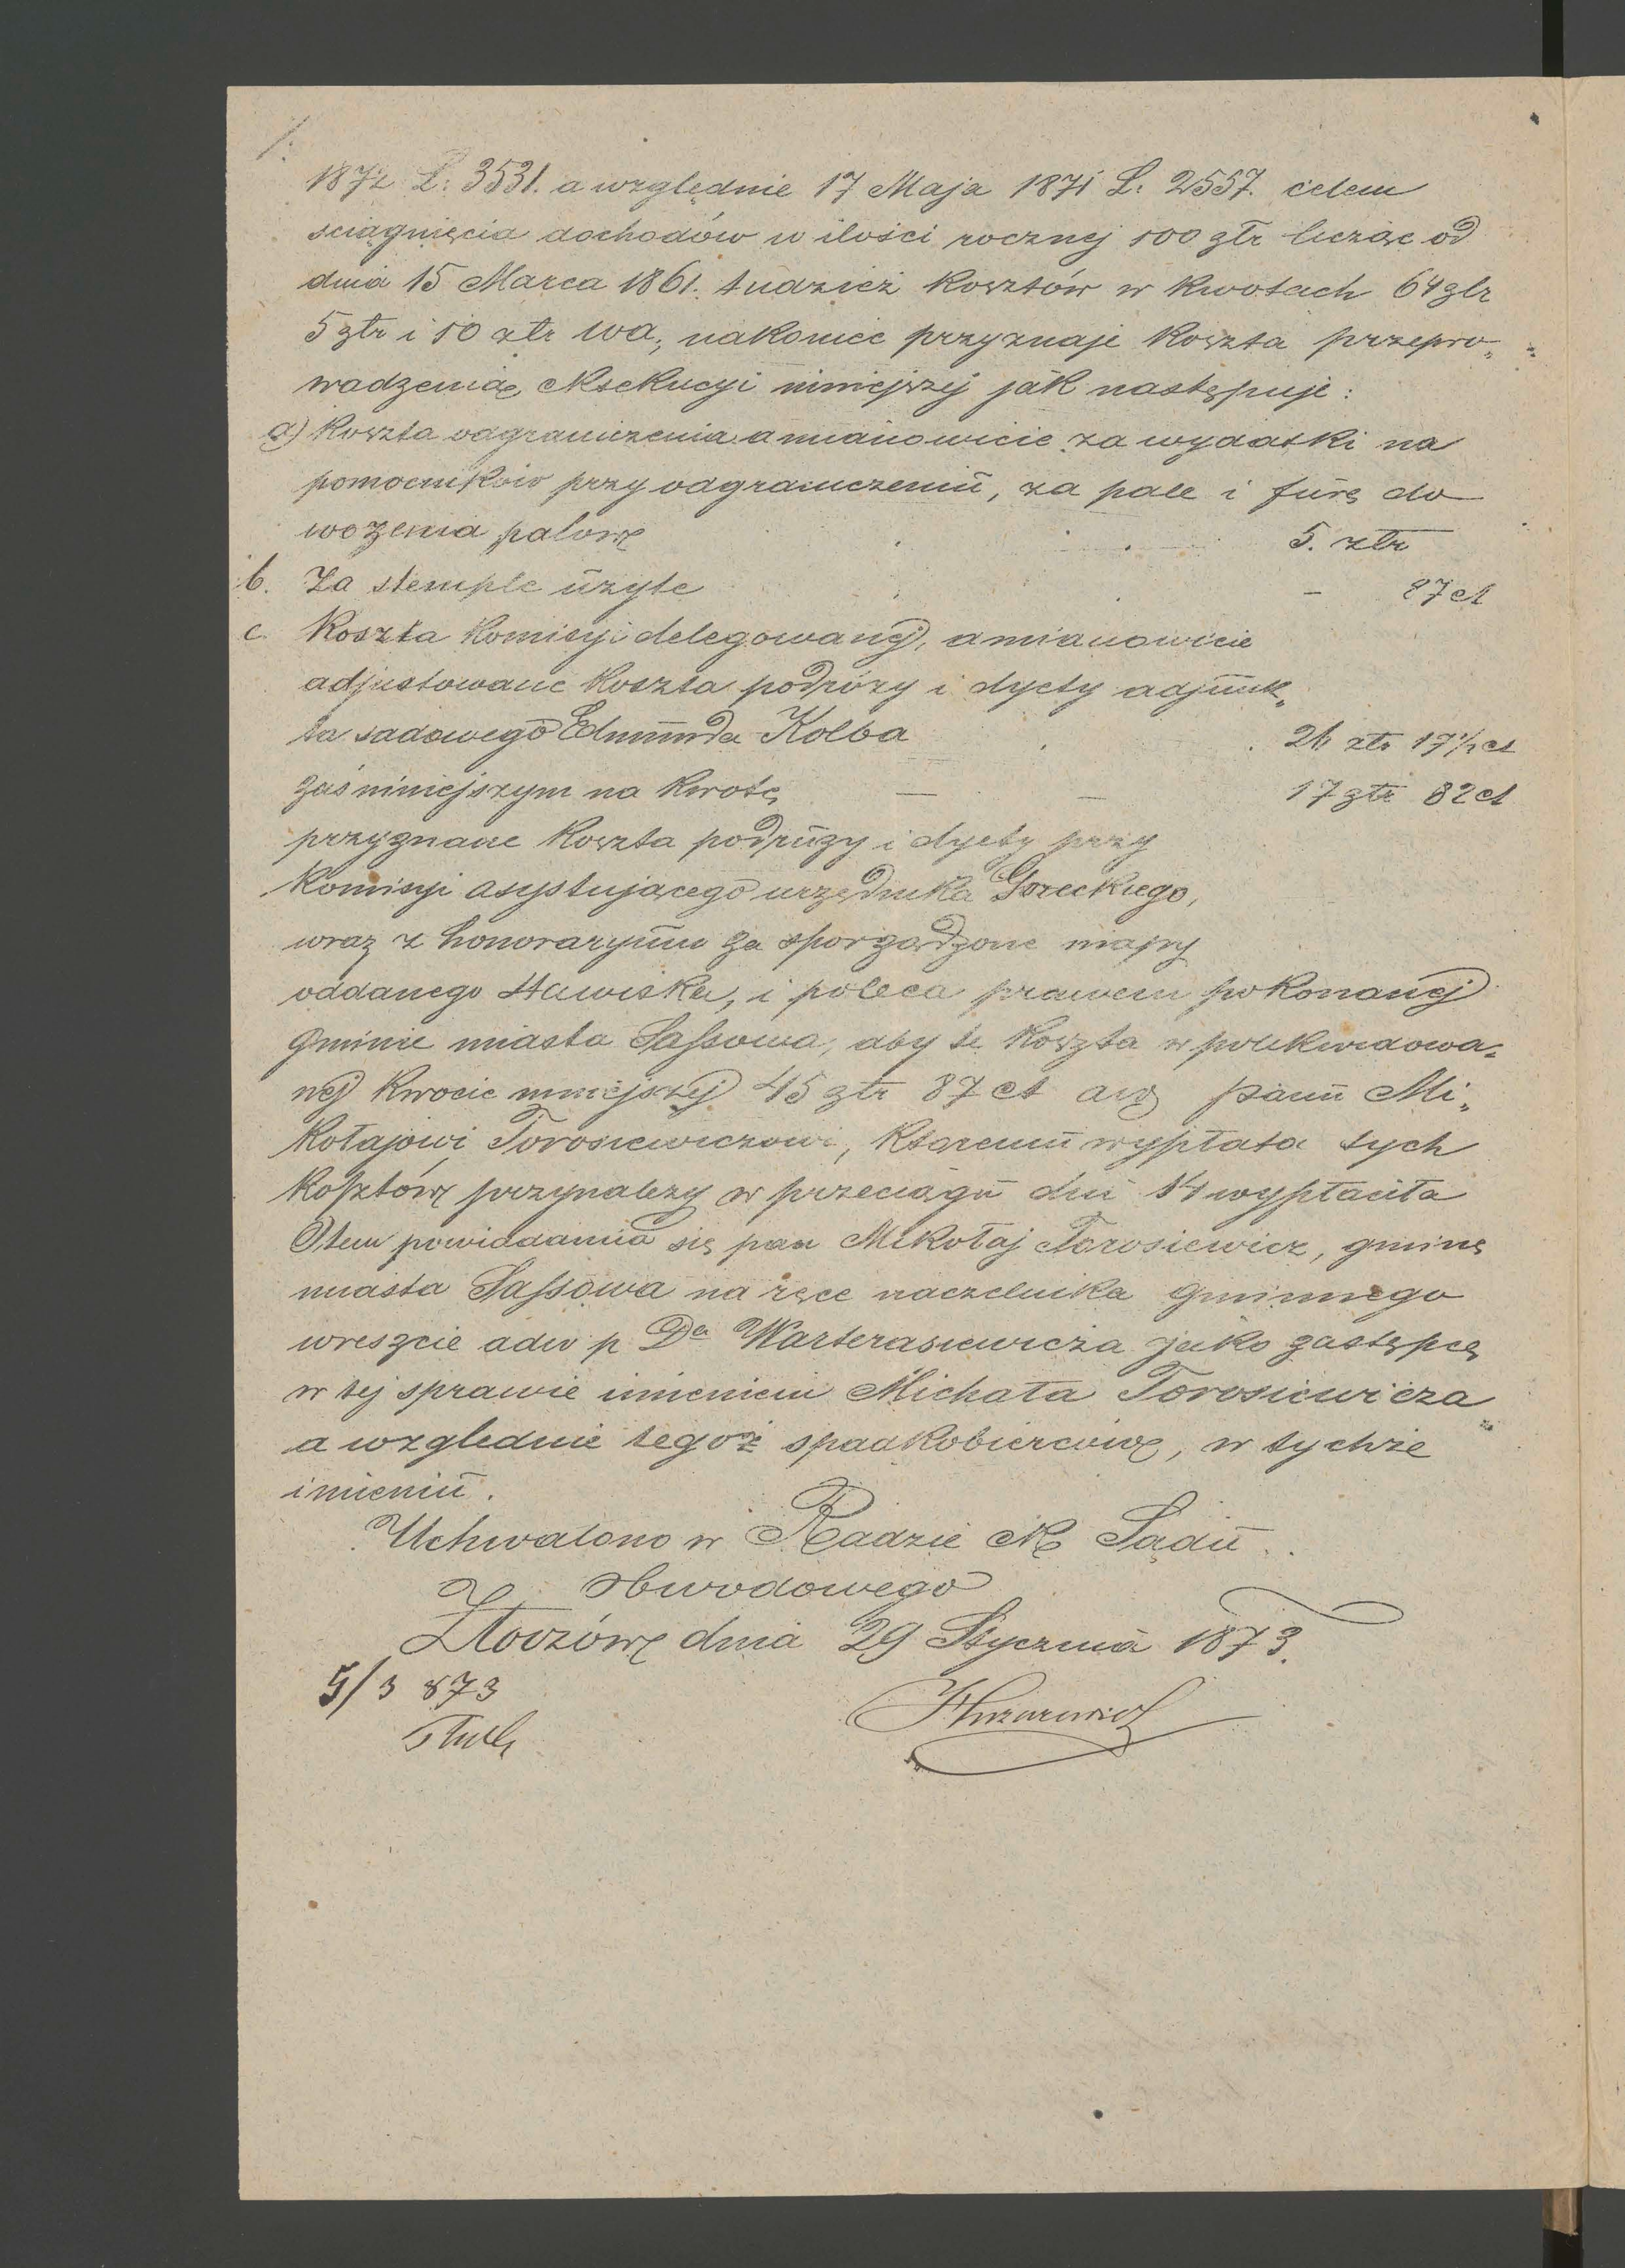 1872 L: 3531. a względnie 17 Maja 1871 L: 2557. celem
sciągnięcia dochodów w ilości rocznej 100 złr licząc od
dnia 15 Marca 1861. tudzież kosztów w kwotach 64 złr
5 złr i 10 złr wa; nakoniec przyznaje koszta przepro„
wadzenia eksekucyi niniejszej jak następuje:
a) koszta odgraniczenia a mianowicie za wydatki na
pomocników przy odgraniczeniu, za pale i furę do
wożenia palów 5. złr
b. Za stemple użyte - 87 ct
c. Koszta komisyi delegowanej, a mianowicie
adjustowane koszta podróży i dyety adjunk„
ta sadowego Edmunda Kolba 21 złr 17½ ct
zaś niniejszym na kwotę 17 złr 82 ct
przyznane koszta podruży i dyety przy
komisyi asystującego urzędnika Goreckiego,
wraz z honoraryum za sporządzone mapy
oddanego stawiska, i poleca prawem pokonanej
gminie miasta Sassowa, aby te koszta w polikwidowa„
nej kwocie mniejszej 45 złr 87 ct panu Mi„
kołajowi Torosiewiczowi, któremu wypłata tych
kosztów przynależy w przeciągu dni 14 wypłaciła
O tem powiadamia się pan Mikołaj Torosiewicz, gminę
miasta Sassowa na ręce naczelnika gminnego
wreszcie adw p Da Warterasiewicza jako zastępcę
w tej sprawie imieniem Michała Torosiewicza
a względnie tegoż spadkobierców, w tychże
imieniu.
Uchwalono w Radzie ck Sądu
obwodowego
Złoczów dnia 29 Stycznia 1873.
5/3 873